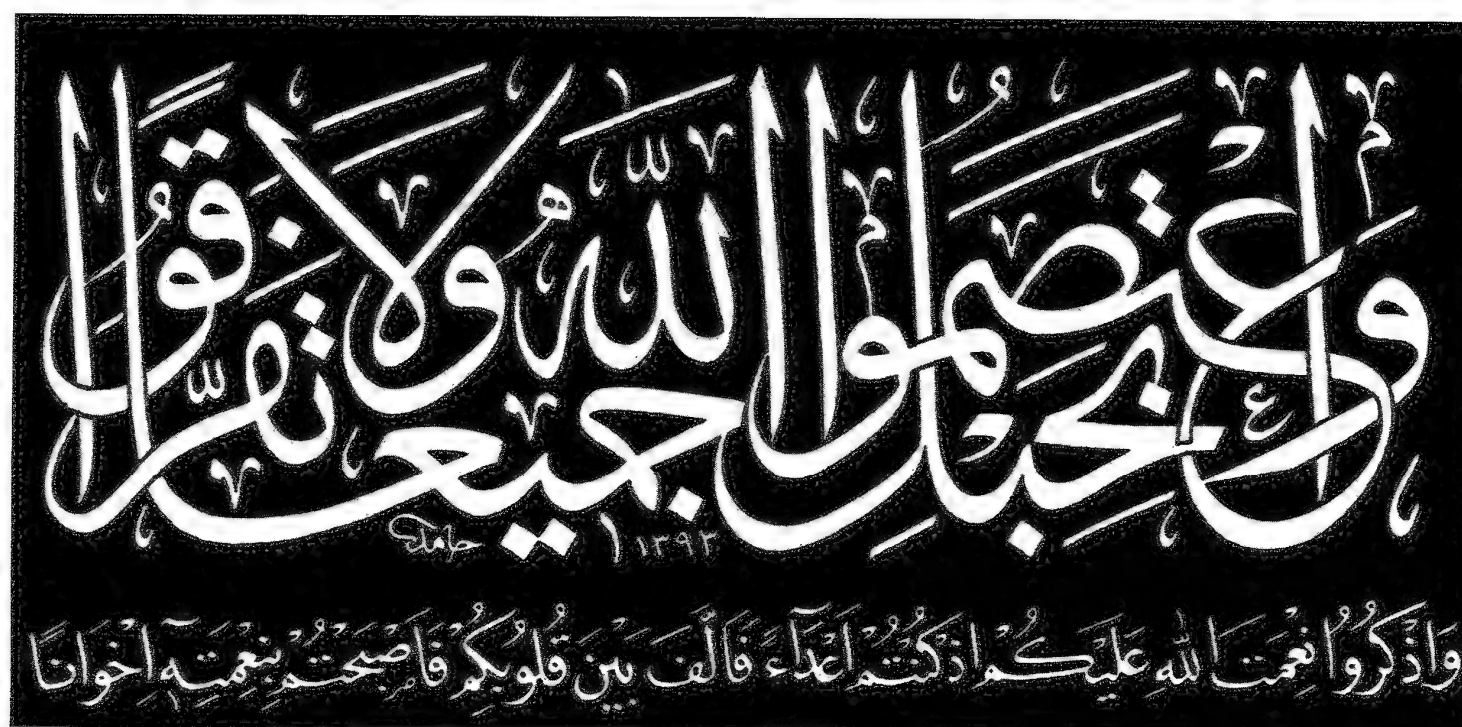 وَاعْتَصِمُوا بِحَبْلِ اللَّهِ جَمِيعًا وَلَا تَفَرَّقُوا
حامد ١٣٩٢
وَاذْكُرُوا نِعْمَتَ اللَّهِ عَلَيْكُمْ اِذْ كُنْتُمْ اَعْدَآءً فَاَلَّفَ بَيْنَ قُلُوبِكُمْ فَاَصْبَحْتُمْ بِنِعْمَتِهِٓ اِخْوَانًا